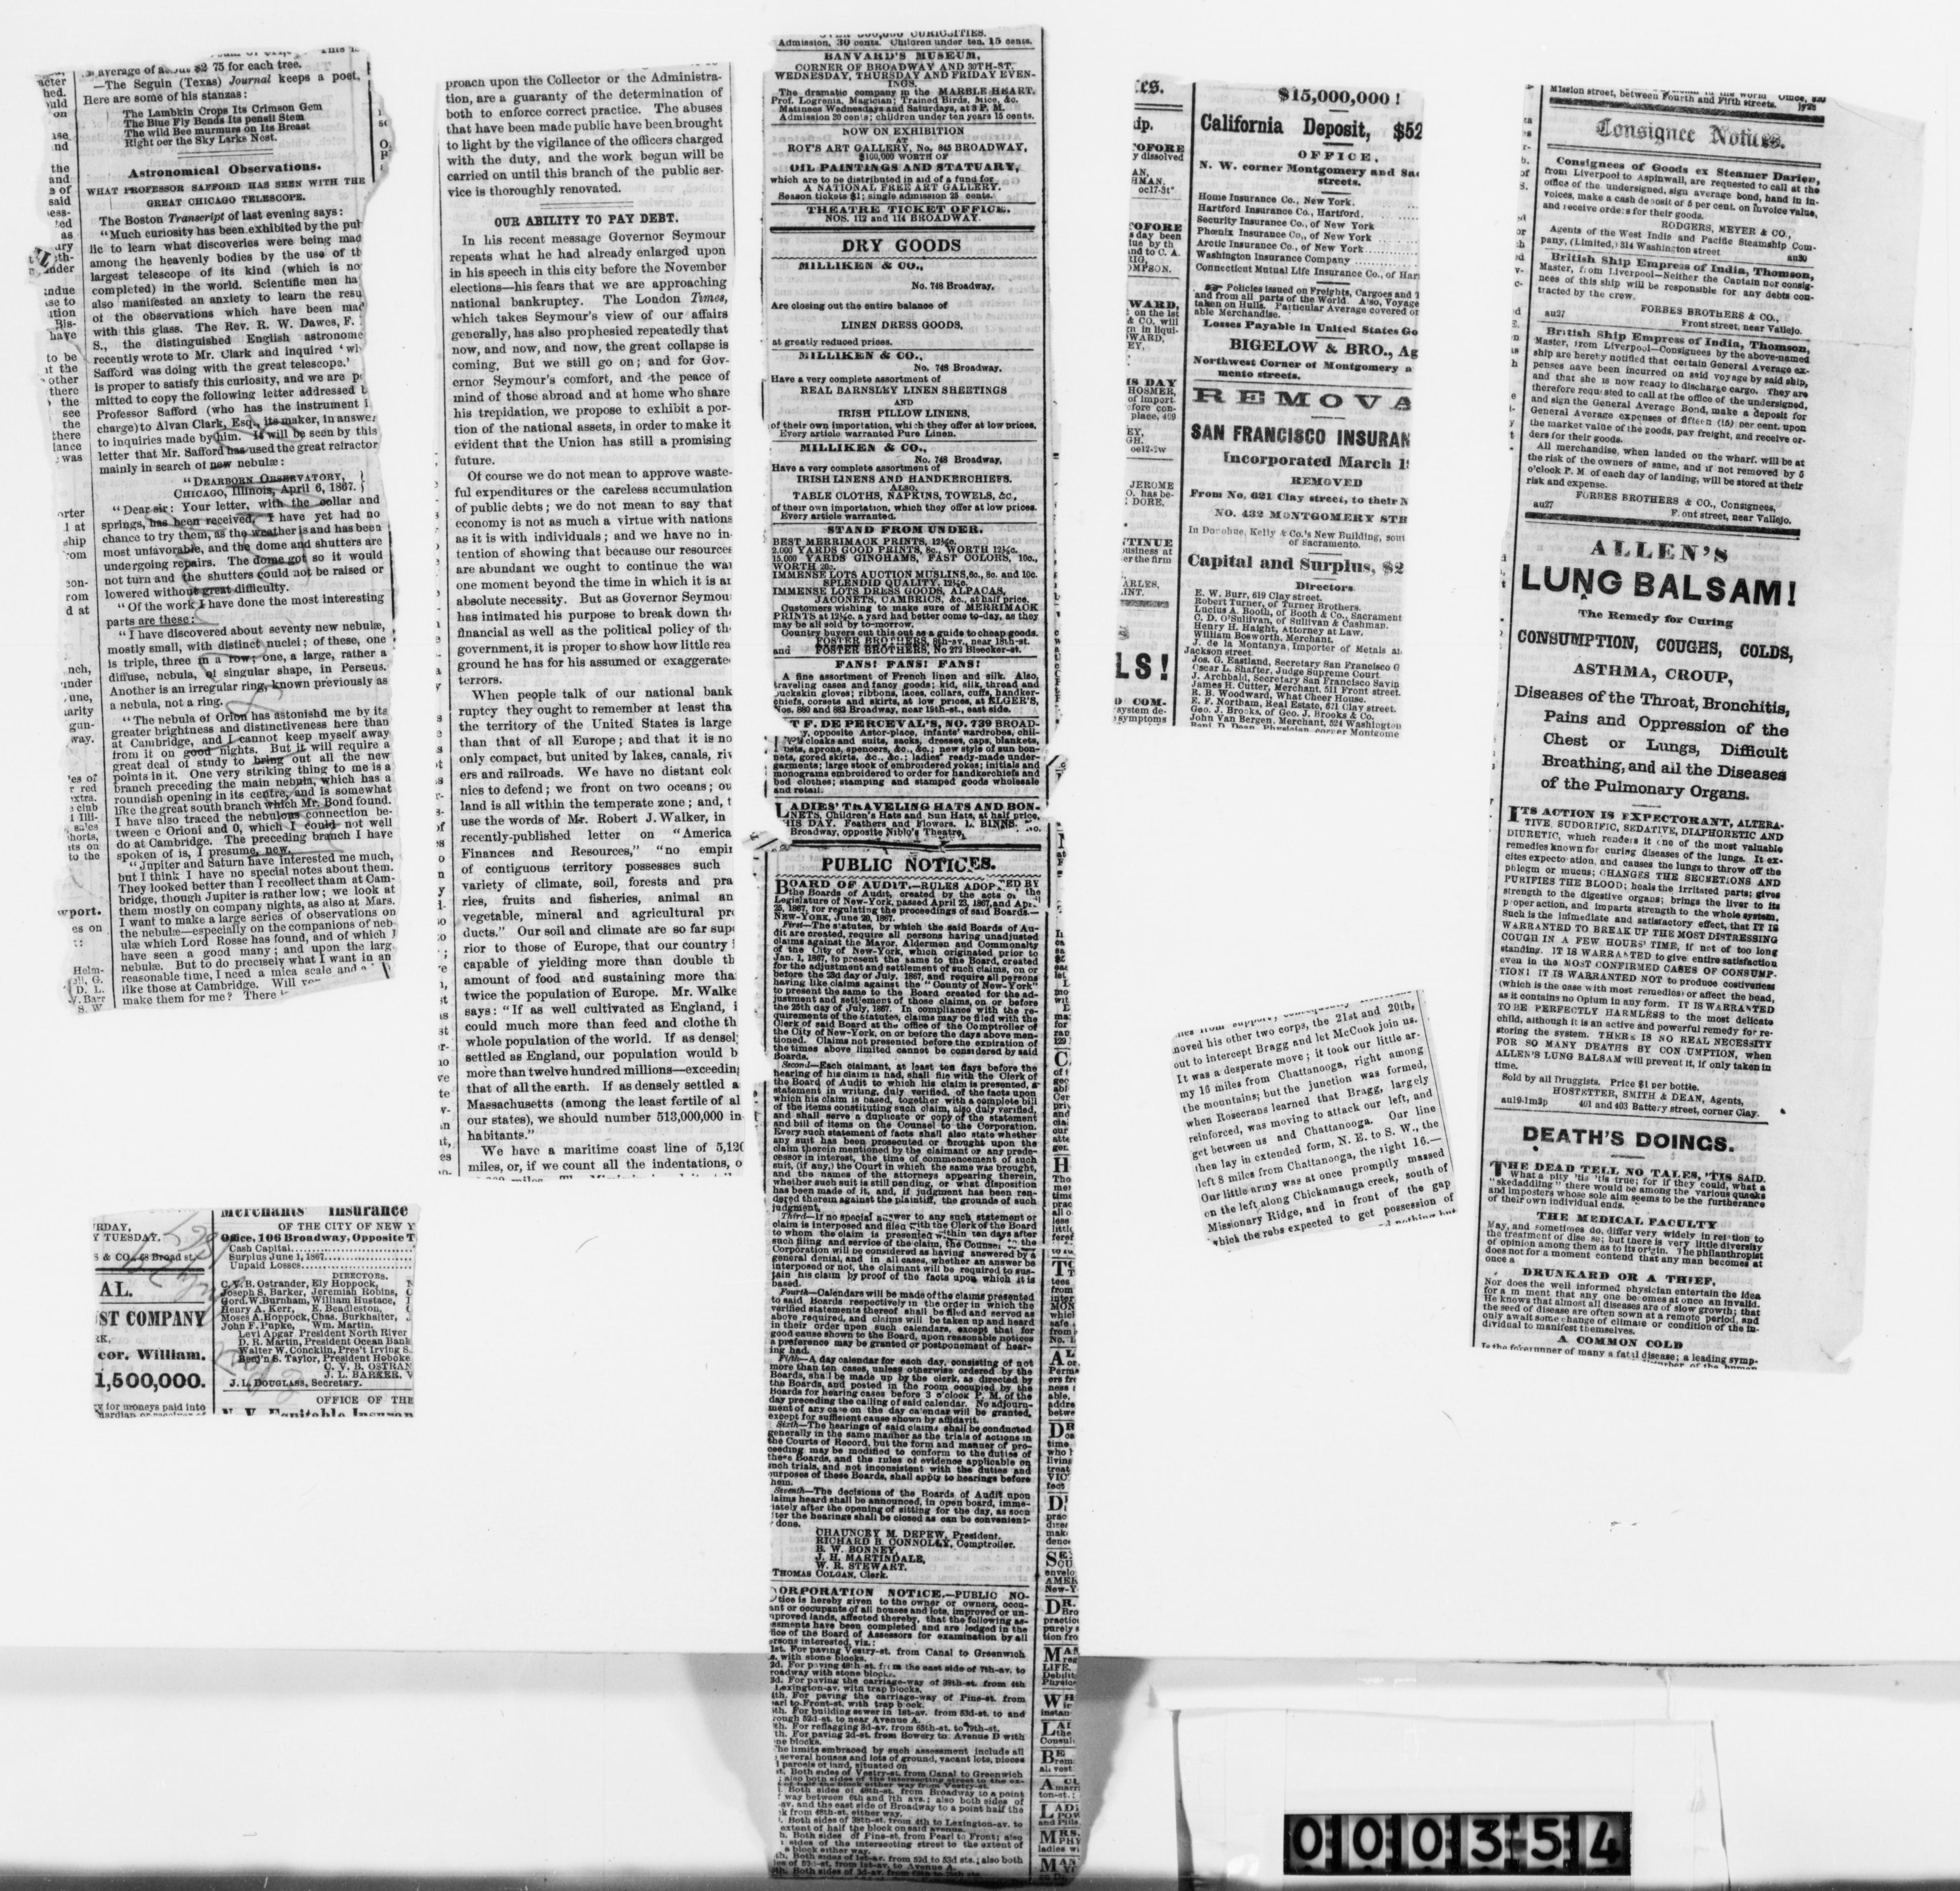 average of about $2 75 for each tree.
—The Seguin (Texas) Journal keeps a poet.
Here are some of his stanzas:
The Lambkin Crops Its Crimson Gem
The Blue Fly Bends Its pensil Stem
The wild Bee murmurs on Its Breast
Right oer the Sky Larks Nest.
Astronomical Observations.
WHAT PROFESSOR SAFFORD HAS SEEN WITH THE
GREAT CHICAGO TELESCOPE.
The Boston Transcript of last evening says:
"Much curiosity has been exhibited by the pub
lic to learn what discoveries were being mad
among the heavenly bodies by the use of th
largest telescope of its kind (which is no
completed) in the world. Scientific men ha
also manifested an anxiety to learn the resu
of the observations which have been mad
with this glass. The Rev. R. W. Dawes, F.
S., the distinguished English astronome
recently wrote to Mr. Clark and inquired 'wh
Safford was doing with the great telescope.'
is proper to satisfy this curiosity, and we are pe
mitted to copy the following letter addressed b
Professor Safford (who has the instrument i
charge) to Alvan Clark, Esq., its maker, in answe
to inquiries made by him. It will be seen by this
letter that Mr. Safford has used the great refractor
mainly in search of new nebulæ:
"DEARBORN OBSERVATORY,
CHICAGO, Illinois, April 6, 1867.
"Dear sir: Your letter, with the collar and
springs, has been received. I have yet had no
chance to try them, as the weather is and has been
most unfavorable, and the dome and shutters are
undergoing repairs. The dome got so it would
not turn and the shutters could not be raised or
lowered without great difficulty.
"Of the work I have done the most interesting
parts are these:
"I have discovered about seventy new nebulæ,
mostly small, with distinct nuclei; of these, one
is triple, three in a row; one, a large, rather a
diffuse, nebula, of singular shape, in Perseus.
Another is an irregular ring, known previously as
a nebula, not a ring.
"The nebula of Orion has astonishd me by its
greater brightness and distinctiveness here than
at Cambridge, and I cannot keep myself away
from it on good nights. But it will require a
great deal of study to bring out all the new
points in it. One very striking thing to me is a
branch preceding the main nebula, which has a
roundish opening in its centre, and is somewhat
like the great south branch which Mr. Bond found.
I have also traced the nebulous connection be-
tween c Orioni and 0, which I could not well
do at Cambridge. The preceding branch I have
spoken of is, I presume, new.
"Jupiter and Saturn have interested me much,
but I think I have no special notes about them.
They looked better than I recollect tham at Cam-
bridge, though Jupiter is rather low; we look at
them mostly on company nights, as also at Mars.
I want to make a large series of observations on
the nebulæ—especially on the companions of neb-
ulæ which Lord Rosse has found, and of which I
have seen a good many; and upon the larg
nebulæ. But to do precisely what I want in an
reasonable time, I need a mica scale and
like those at Cambridge. Will
make them for me? There
RDAY,
Y TUESDAY.
S & CO., 48 Broad st.
AL.
ST COMPANY
cor. William.
1,500,000.
y for moneys paid into
Merchants' Insurance
OF THE CITY OF NEW Y
Office, 106 Broadway, Opposite T
Cash Capital
Surplus June 1, 1867
Unpaid Losses
DIRECTORS.
C. V. B. Ostrander, Ely Hoppock,
Joseph S. Barker, Jeremiah Robins,
Gord. W. Burnham, William Hustace,
Henry A. Kerr, E. Beadleston,
Moses A. Hoppock, Chas. Burkhalter,
John F. Pupke, Wm. Martin,
Levi Apgar President North River
D. R. Martin, President Ocean Bank
Walter W. Concklin, Pres't Irving S
Benj'n S. Taylor, President Hoboke
C. V. B. OSTRAN
J. L. BARKER, V
J. L. DOUGLASS, Secretary.
OFFICE OF THE
N. Y. Equitable Insuran
proach upon the Collector or the Administra-
tion, are a guaranty of the determination of
both to enforce correct practice. The abuses
that have been made public have been brought
to light by the vigilance of the officers charged
with the duty, and the work begun will be
carried on until this branch of the public ser-
vice is thoroughly renovated.
OUR ABILITY TO PAY DEBT.
In his recent message Governor Seymour
repeats what he had already enlarged upon
in his speech in this city before the November
elections—his fears that we are approaching
national bankruptcy. The London Times,
which takes Seymour's view of our affairs
generally, has also prophesied repeatedly that
now, and now, and now, the great collapse is
coming. But we still go on; and for Gov-
ernor Seymour's comfort, and the peace of
mind of those abroad and at home who share
his trepidation, we propose to exhibit a por-
tion of the national assets, in order to make it
evident that the Union has still a promising
future.
Of course we do not mean to approve waste-
ful expenditures or the careless accumulation
of public debts; we do not mean to say that
economy is not as much a virtue with nations
as it is with individuals; and we have no in-
tention of showing that because our resources
are abundant we ought to continue the war
one moment beyond the time in which it is ar
absolute necessity. But as Governor Seymou
has intimated his purpose to break down the
financial as well as the political policy of th
government, it is proper to show how little rea
ground he has for his assumed or exaggerate
terrors.
When people talk of our national bank
ruptcy they ought to remember at least tha
the territory of the United States is large
than that of all Europe; and that it is no
only compact, but united by lakes, canals, riv
ers and railroads. We have no distant colo
nies to defend; we front on two oceans; ou
land is all within the temperate zone; and, t
use the words of Mr. Robert J. Walker, in
recently-published letter on "America
Finances and Resources," "no empir
of contiguous territory possesses such
variety of climate, soil, forests and pra
ries, fruits and fisheries, animal an
vegetable, mineral and agricultural pro
ducts." Our soil and climate are so far supe
rior to those of Europe, that our country
capable of yielding more than double th
amount of food and sustaining more tha
twice the population of Europe. Mr. Walke
says: "If as well cultivated as England, i
could much more than feed and clothe th
whole population of the world. If as densel
settled as England, our population would b
more than twelve hundred millions—exceeding
that of all the earth. If as densely settled a
Massachusetts (among the least fertile of al
our states), we should number 513,000,000 in
habitants."
We have a maritime coast line of 5,120
miles, or, if we count all the indentations, o
OVER 500,000 CURIOSITIES.
Admission, 30 cents. Children under ten, 15 cents.
BANVARD'S MUSEUM,
CORNER OF BROADWAY AND 30TH-ST.
WEDNESDAY, THURSDAY AND FRIDAY EVEN-
INGS.
The dramatic company in the MARBLE HEART.
Prof. Logrenia, Magician; Trained Birds, Mice, &c.
Matinees Wednesdays and Saturdays, at 2 P. M.
Admission 30 cents; children under ten years 15 cents.
NOW ON EXHIBITION
AT
ROY'S ART GALLERY, No. 845 BROADWAY,
$100,000 WORTH OF
OIL PAINTINGS AND STATUARY,
which are to be distributed in aid of a fund for
A NATIONAL FREE ART GALLERY.
Season tickets $1; single admission 25 cents.
THEATRE TICKET OFFICE.
NOS. 112 and 114 BROADWAY.
DRY GOODS
MILLIKEN & CO.,
No. 748 Broadway,
Are closing out the entire balance of
LINEN DRESS GOODS,
at greatly reduced prices.
MILLIKEN & CO.,
No. 748 Broadway.
Have a very complete assortment of
REAL BARNSLEY LINEN SHEETINGS
AND
IRISH PILLOW LINENS,
of their own importation, which they offer at low prices.
Every article warranted Pure Linen.
MILLIKEN & CO.,
No. 748 Broadway,
Have a very complete assortment of
IRISH LINENS AND HANDKERCHIEFS.
ALSO,
TABLE CLOTHS, NAPKINS, TOWELS, &c.,
of their own importation, which they offer at low prices.
Every article warranted.
STAND FROM UNDER.
BEST MERRIMACK PRINTS, 12½c.
2,000 YARDS GOOD PRINTS, 8c., WORTH 12½c.
15,000 YARDS GINGHAMS, FAST COLORS, 10c.,
WORTH 20c.
IMMENSE LOTS AUCTION MUSLINS, 6c., 8c. and 10c.
SPLENDID QUALITY, 12½c.
IMMENSE LOTS DRESS GOODS, ALPACAS,
JACONETS, CAMBRICS, &c., at half price.
Customers wishing to make sure of MERRIMACK
PRINTS at 12½c. a yard had better come to-day, as they
may be all sold by to-morrow.
Country buyers cut this out as a guide to cheap goods.
FOSTER BROTHERS, 8th-av., near 18th-st.
and FOSTER BROTHERS, No 272 Bleecker-st.
FANS! FANS! FANS!
A fine assortment of French linen and silk. Also,
traveling cases and fancy goods; kid, silk, thread and
buckskin gloves; ribbons, laces, collars, cuffs, handker-
chiefs, corsets and skirts, at low prices, at ELGER'S,
Nos. 880 and 882 Broadway, near 19th-st., east side.
T F. DE PERCEVAL'S, NO. 739 BROAD-
y, opposite Astor-place, infants' wardrobes, chil-
cloaks and suits, sacks, dresses, caps, blankets,
aprons, spencers, &c., &c.; new style of sun bon-
nets, gored skirts, &c., &c.; ladies' ready-made under-
garments; large stock of embroidered yokes; initials and
monograms embroidered to order for handkerchiefs and
bed clothes; stamping and stamped goods wholesale
and retail.
LADIES' TRAVELING HATS AND BON-
NETS, Children's Hats and Sun Hats, at half price,
THIS DAY. Feathers and Flowers. L. BINNS,
Broadway, opposite Niblo's Theatre.
PUBLIC NOTICES.
BOARD OF AUDIT.—RULES ADOPTED BY
the Boards of Audit, created by the acts of the
Legislature of New-York, passed April 23, 1867, and Apr.
25, 1867, for regulating the proceedings of said Boards.—
NEW-YORK, June 20, 1867.
First—The statutes, by which the said Boards of Au-
dit are created, require all persons having unadjusted
claims against the Mayor, Aldermen and Commonalty
of the City of New-York, which originated prior to
Jan. 1, 1867, to present the same to the Board, created
for the adjustment and settlement of such claims, on or
before the 23d day of July, 1867, and require all persons
having like claims against the "County of New-York"
to present the same to the Board created for the ad-
justment and settlement of those claims, on or before
the 25th day of July, 1867. In compliance with the re-
quirements of the statutes, claims may be filed with the
Clerk of said Board at the office of the Comptroller of
the City of New-York, on or before the days above men-
tioned. Claims not presented before the expiration of
the times above limited cannot be considered by said
Boards.
Second—Each claimant, at least ten days before the
hearing of his claim is had, shall file with the Clerk of
the Board of Audit to which his claim is presented, a
statement in writing, duly verified, of the facts upon
which his claim is based, together with a complete bill
of the items constituting such claim, also duly verified,
and shall serve a duplicate or copy of the statement
and bill of items on the Counsel to the Corporation.
Every such statement of facts shall also state whether
any suit has been prosecuted or brought upon the
claim therein mentioned by the claimant or any prede-
cessor in interest, the time of commencement of such
suit, (if any,) the Court in which the same was brought,
and the names of the attorneys appearing therein,
whether such suit is still pending, or what disposition
has been made of it, and, if judgment has been ren-
dered therein against the plaintiff, the grounds of such
judgment.
Third—If no special answer to any such statement or
claim is interposed and filed with the Clerk of the Board
to whom the claim is presented within ten days after
such filing and service of the claim, the Counsel to the
Corporation will be considered as having answered by a
general denial, and in all cases, whether an answer be
interposed or not, the claimant will be required to sus-
tain his claim by proof of the facts upon which it is
based.
Fourth—Calendars will be made of the claims presented
to said Boards respectively in the order in which the
verified statements thereof shall be filed and served as
above required, and claims will be taken up and heard
in their order upon such calendars, except that for
good cause shown to the Board, upon reasonable notices
a preference may be granted or postponement of hear-
ing had.
Fifth—A day calendar for each day, consisting of not
more than ten cases, unless otherwise ordered by the
Boards, shall be made up by the clerk, as directed by
the Boards, and posted in the room occupied by the
Boards for hearing cases before 3 o'clock P. M. of the
day preceding the calling of said calendar. No adjourn-
ment of any case on the day calendar will be granted,
except for sufficient cause shown by affidavit.
Sixth—The hearings of said claims shall be conducted
generally in the same manner as the trials of actions in
the Courts of Record, but the form and manner of pro-
ceeding may be modified to conform to the duties of
these Boards, and the rules of evidence applicable on
such trials, and not inconsistent with the duties and
purposes of these Boards, shall apply to hearings before
hem.
Seventh—The decisions of the Boards of Audit upon
laims heard shall be announced, in open board, imme-
iately after the opening of sitting for the day, as soon
fter the hearings shall be closed as can be convenient-
done.
CHAUNCEY M. DEPEW, President.
RICHARD B. CONNOLLY, Comptroller.
B. W. BONNEY,
J. H. MARTINDALE,
W. R. STEWART.
THOMAS COLGAN, Clerk.
CORPORATION NOTICE.—PUBLIC NO-
tice is hereby given to the owner or owners, occu-
ant or occupants of all houses and lots, improved or un-
mproved lands, affected thereby, that the following as-
ssments have been completed and are lodged in the
fice of the Board of Assessors for examination by all
ersons interested, viz.:
1st. For paving Vestry-st. from Canal to Greenwich
s. with stone blocks.
2d. For paving 48th-st. from the east side of 7th-av. to
roadway with stone blocks.
3d. For paving the carriage-way of 39th-st. from 4th
Lexington-av. with trap blocks.
4th. For paving the carriage-way of Pine-st. from
earl to Front-st. with trap block.
5th. For building sewer in 1st-av. from 53d-st. to and
rough 52d-st. to near Avenue A.
6th. For reflagging 3d-av. from 65th-st. to 79th-st.
th. For paving 2d-st. from Bowery to Avenue D with
ne blocks.
he limits embraced by such assessment include all
several houses and lots of ground, vacant lots, pieces
parcels of land, situated on
st. Both sides of Vestry-st. from Canal to Greenwich
; also both sides of the intersecting street to the ex-
of half the block either way from Vestry-st.
. Both sides of 48th-st. from Broadway to a point
way between 6th and 7th avs.; also both sides of
-av. and the east side of Broadway to a point half the
k from 48th-st. either way.
. Both sides of 39th-st. from 4th to Lexington-av. to
extent of half the block on said avenue.
h. Both sides of Pine-st. from Pearl to Front; also
sides of the intersecting street to the extent of
a block either way.
th. Both sides of 1st-av. from 52d to 53d sts.; also both
les of 52d-st. from 1st-av. to Avenue A.
$15,000,000!
California Deposit, $52
OFFICE,
N. W. corner Montgomery and Sac
streets.
Home Insurance Co., New York.
Hartford Insurance Co., Hartford.
Security Insurance Co., of New York
Phœnix Insurance Co., of New York
Arctic Insurance Co., of New York
Washington Insurance Company
Connecticut Mutual Life Insurance Co., of Har
Policies issued on Freights, Cargoes and T
and from all parts of the World. Also, Voyage
taken on Hulls. Particular Average covered or
able Merchandise.
Losses Payable in United States Go
BIGELOW & BRO., Ag
Northwest Corner of Montgomery a
mento streets.
REMOVA
SAN FRANCISCO INSURAN
Incorporated March 1
REMOVED
From No. 621 Clay street, to their N
NO. 432 MONTGOMERY STR
In Donohue, Kelly & Co.'s New Building, sout
of Sacramento.
Capital and Surplus, $2
Directors
E. W. Burr, 619 Clay street.
Robert Turner, of Turner Brothers.
Lucius A. Booth, of Booth & Co., Sacrament
C. D. O'Sullivan, of Sullivan & Cashman.
Henry H. Haight, Attorney at Law.
William Bosworth, Merchant.
J. de la Montanya, Importer of Metals a
Jackson street.
Jos. G. Eastland, Secretary San Francisco G
Oscar L. Shafter, Judge Supreme Court.
J. Archbald, Secretary San Francisco Savin
James H. Cutter, Merchant, 511 Front street.
R. B. Woodward, What Cheer House.
E. F. Northam, Real Estate, 621 Clay street.
Geo. J. Brooks, of Geo. J. Brooks & Co.
John Van Bergen, Merchant, 524 Washington
LS!
moved his other two corps, the 21st and 20th,
out to intercept Bragg and let McCook join us.
It was a desperate move; it took our little ar-
my 16 miles from Chattanooga, right among
the mountains; but the junction was formed,
when Rosecrans learned that Bragg, largely
reinforced, was moving to attack our left, and
get between us and Chattanooga. Our line
then lay in extended form, N. E. to S. W., the
left 8 miles from Chattanooga, the right 16.—
Our little army was at once promptly massed
on the left along Chickamauga creek, south of
Missionary Ridge, and in front of the gap
which the rebs expected to get possession of
Mission street, between Fourth and Fifth streets.
Consignee Notices.
Consignees of Goods ex Steamer Darien,
from Liverpool to Aspinwall, are requested to call at the
office of the undersigned, sign average bond, hand in in-
voices, make a cash deposit of 5 per cent. on invoice value,
and receive orders for their goods.
RODGERS, MEYER & CO.,
Agents of the West India and Pacific Steamship Com-
pany, (Limited,) 314 Washington street au30
British Ship Empress of India, Thomson,
Master, from Liverpool—Neither the Captain nor consig-
nees of this ship will be responsible for any debts con-
tracted by the crew.
FORBES BROTHERS & CO.,
au27 Front street, near Vallejo.
British Ship Empress of India, Thomson,
Master, from Liverpool—Consignees by the above-named
ship are hereby notified that certain General Average ex-
penses have been incurred on said voyage by said ship,
and that she is now ready to discharge cargo. They are
therefore requested to call at the office of the undersigned,
and sign the General Average Bond, make a deposit for
General Average expenses of fifteen (15) per cent. upon
the market value of the goods, pay freight, and receive or-
ders for their goods.
All merchandise, when landed on the wharf, will be at
the risk of the owners of same, and if not removed by 5
o'clock P. M of each day of landing, will be stored at their
risk and expense.
FORBES BROTHERS & CO., Consignees,
au27 Front street, near Vallejo.
ALLEN'S
LUNG BALSAM!
The Remedy for Curing
CONSUMPTION, COUGHS, COLDS,
ASTHMA, CROUP,
Diseases of the Throat, Bronchitis,
Pains and Oppression of the
Chest or Lungs, Difficult
Breathing, and all the Diseases
of the Pulmonary Organs.
ITS ACTION IS EXPECTORANT, ALTERA-
TIVE, SUDORIFIC, SEDATIVE, DIAPHORETIC AND
DIURETIC, which renders it one of the most valuable
remedies known for curing diseases of the lungs. It ex-
cites expectoration, and causes the lungs to throw off the
phlegm or mucus; CHANGES THE SECRETIONS AND
PURIFIES THE BLOOD; heals the irritated parts; gives
strength to the digestive organs; brings the liver to its
proper action, and imparts strength to the whole system.
Such is the immediate and satisfactory effect, that IT IS
WARRANTED TO BREAK UP THE MOST DISTRESSING
COUGH IN A FEW HOURS' TIME, if not of too long
standing. IT IS WARRANTED to give entire satisfaction
even in the MOST CONFIRMED CASES OF CONSUMP-
TION! IT IS WARRANTED NOT to produce costiveness
(which is the case with most remedies) or affect the head,
as it contains no Opium in any form. IT IS WARRANTED
TO BE PERFECTLY HARMLESS to the most delicate
child, although it is an active and powerful remedy for re-
storing the system. THERE IS NO REAL NECESSITY
FOR SO MANY DEATHS BY CONSUMPTION, when
ALLEN'S LUNG BALSAM will prevent it, if only taken in
time.
Sold by all Druggists. Price $1 per bottle.
HOSTETTER, SMITH & DEAN, Agents,
au19-1m3p 401 and 403 Battery street, corner Clay.
DEATH'S DOINGS.
THE DEAD TELL NO TALES, 'TIS SAID.
What a pity 'tis 'tis true; for if they could, what a
"skedaddling" there would be among the various quacks
and imposters whose sole aim seems to be the furtherance
of their own individual ends.
THE MEDICAL FACULTY
May, and sometimes do, differ very widely in relation to
the treatment of disease; but there is very little diversity
of opinion among them as to its origin. The philanthropist
does not for a moment contend that any man becomes at
once a
DRUNKARD OR A THIEF,
Nor does the well informed physician entertain the idea
for a moment that any one becomes at once an invalid.
He knows that almost all diseases are of slow growth; that
the seed of disease are often sown at a remote period, and
only await some change of climate or condition of the in-
dividual to manifest themselves.
A COMMON COLD
Is the forerunner of many a fatal disease; a leading symp-
000354